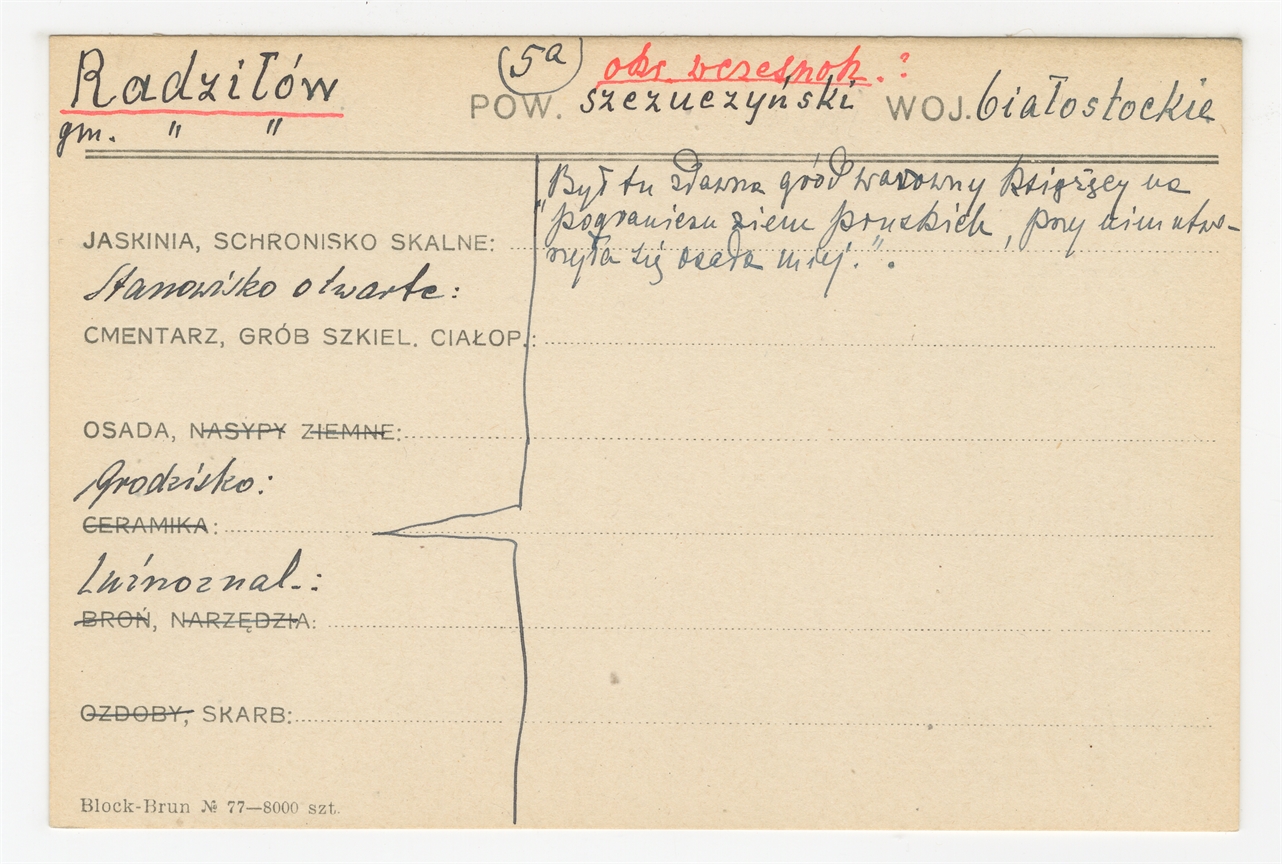 Radziłów
5a
okr. wczespol. ?
POW. szczuczyński WOJ. białostockie
gm. " "
"Był tu zdawna gród warowny książęcy na
pograniczu ziem pruskich, przy nim utwo-
rzyła się osada miej.".
JASKINIA, SCHRONISKO SKALNE:
Stanowisko otwarte:
CMENTARZ, GRÓB SZKIEL. CIAŁOP.:
OSADA, NASYPY ZIEMNE:
Grodzisko:
CERAMIKA:
Luźnoznal.:
BROŃ, NARZĘDZIA:
OZDOBY, SKARB:
Block-Brun № 77—8000 szt.